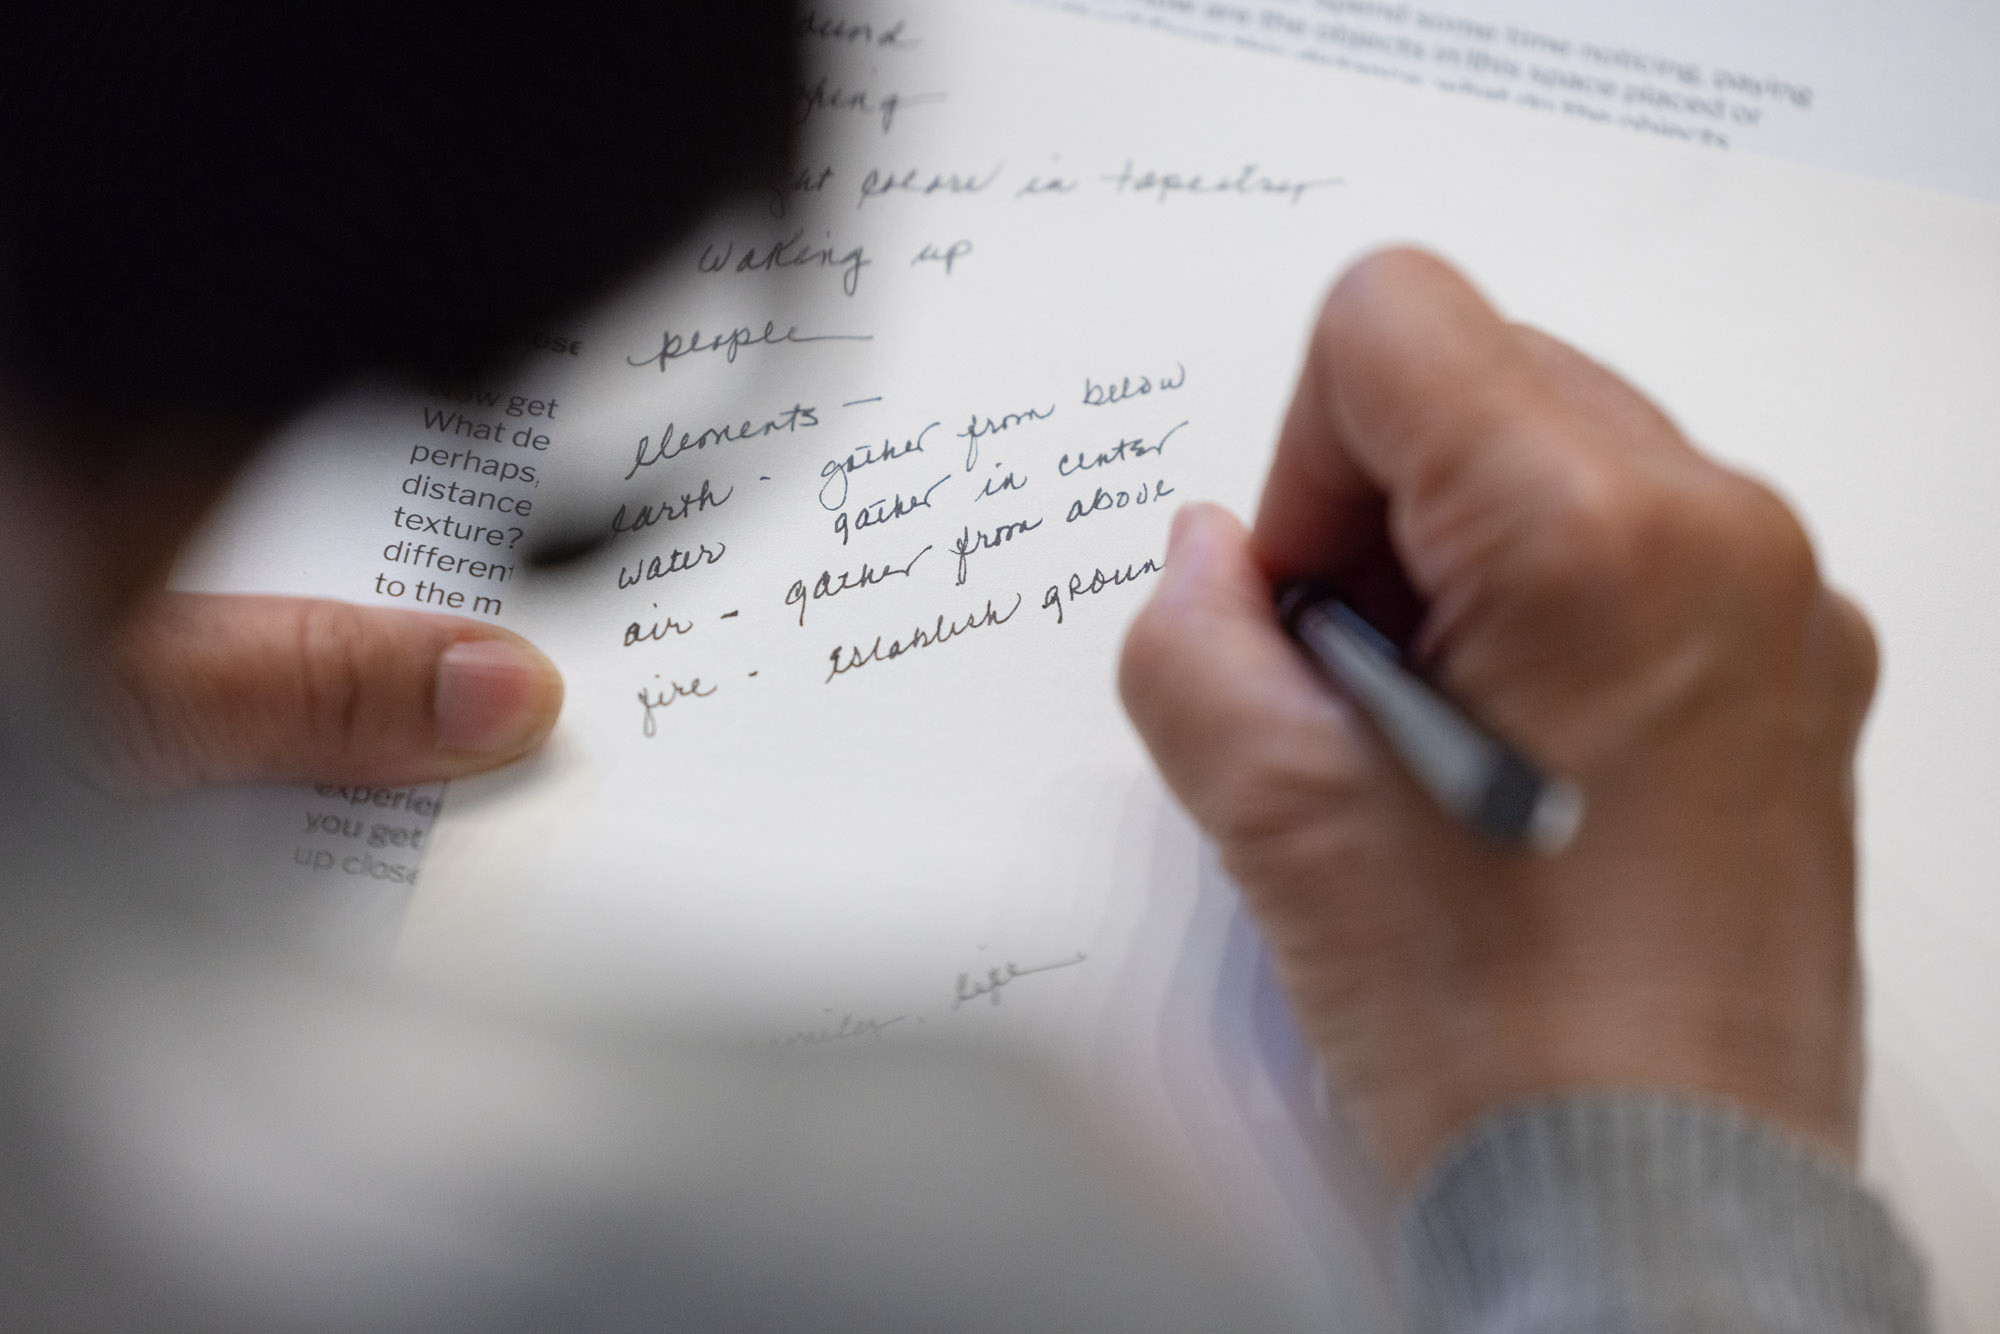 spend some time noticing, paying
are the objects in this space placed or
what do the objects
colors in tapestry
waking up
people
elements —
earth - gather from below
water gather in center
air - gather from above
fire - establish groun
get
What de
perhaps,
distance
texture?
differen
to the m
experie
you get
up close
life